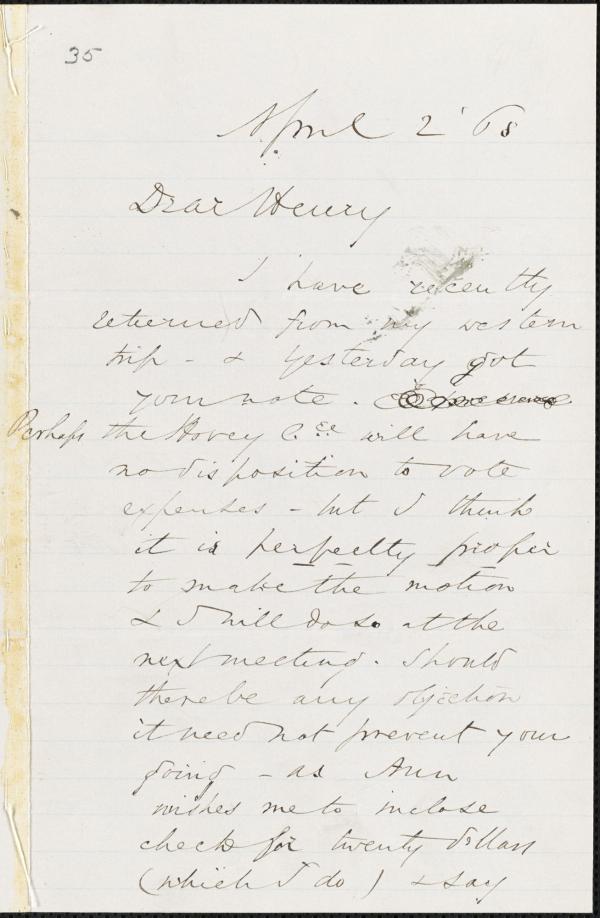 35
April 2' 68
Dear Henry
I have recently
returned from my western
trip - & yesterday got
your note.
Perhaps the Hovey Cee will have
no disposition to vote
expenses - but I think
it is perfectly proper
to make the motion
& I will do so at the
next meeting. Should
there be any objection
it need not prevent your
going - as Ann
wishes me to inclose
check for twenty dollars
(which I do) & say